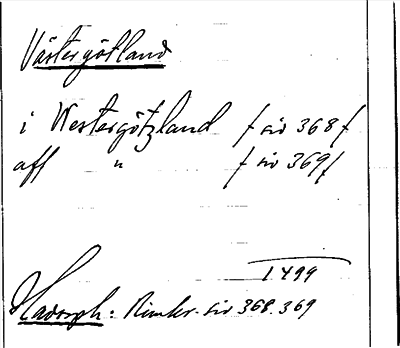 Västergötland
i Westergötzland f siv 368 f
aff " f siv 369 f
1499
Hadorph: Rimkr. siv 368. 369